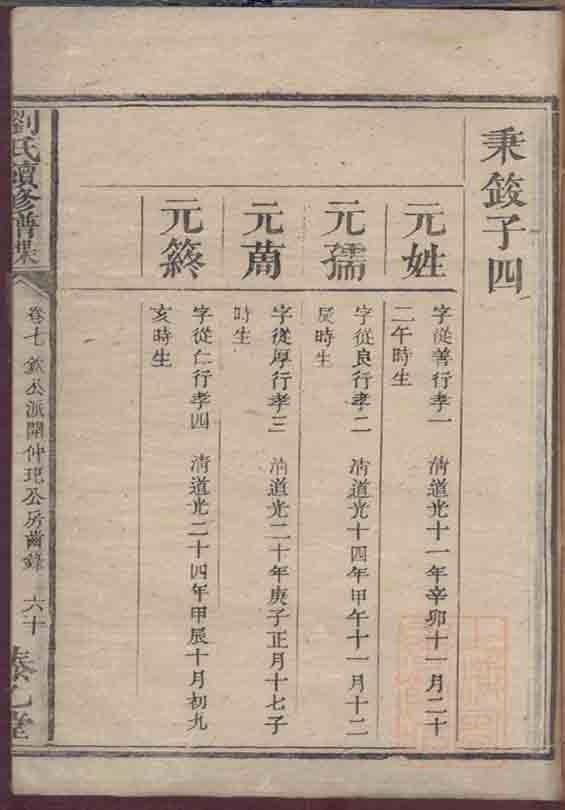 秉鈠子四
元姓
字從善行孝一 清道光十一年辛卯十一月二十
二午時生
元孺
字從良行孝二 清道光十四年甲午十一月十二
辰時生
元蔄
字從厚行孝三 清道光二十年庚子正月十七子
時生
元簃
字從仁行孝四 清道光二十四年甲辰十月初九
亥時生
劉氏續修譜牒
卷七 公派開仲玘公房齒錄 六十